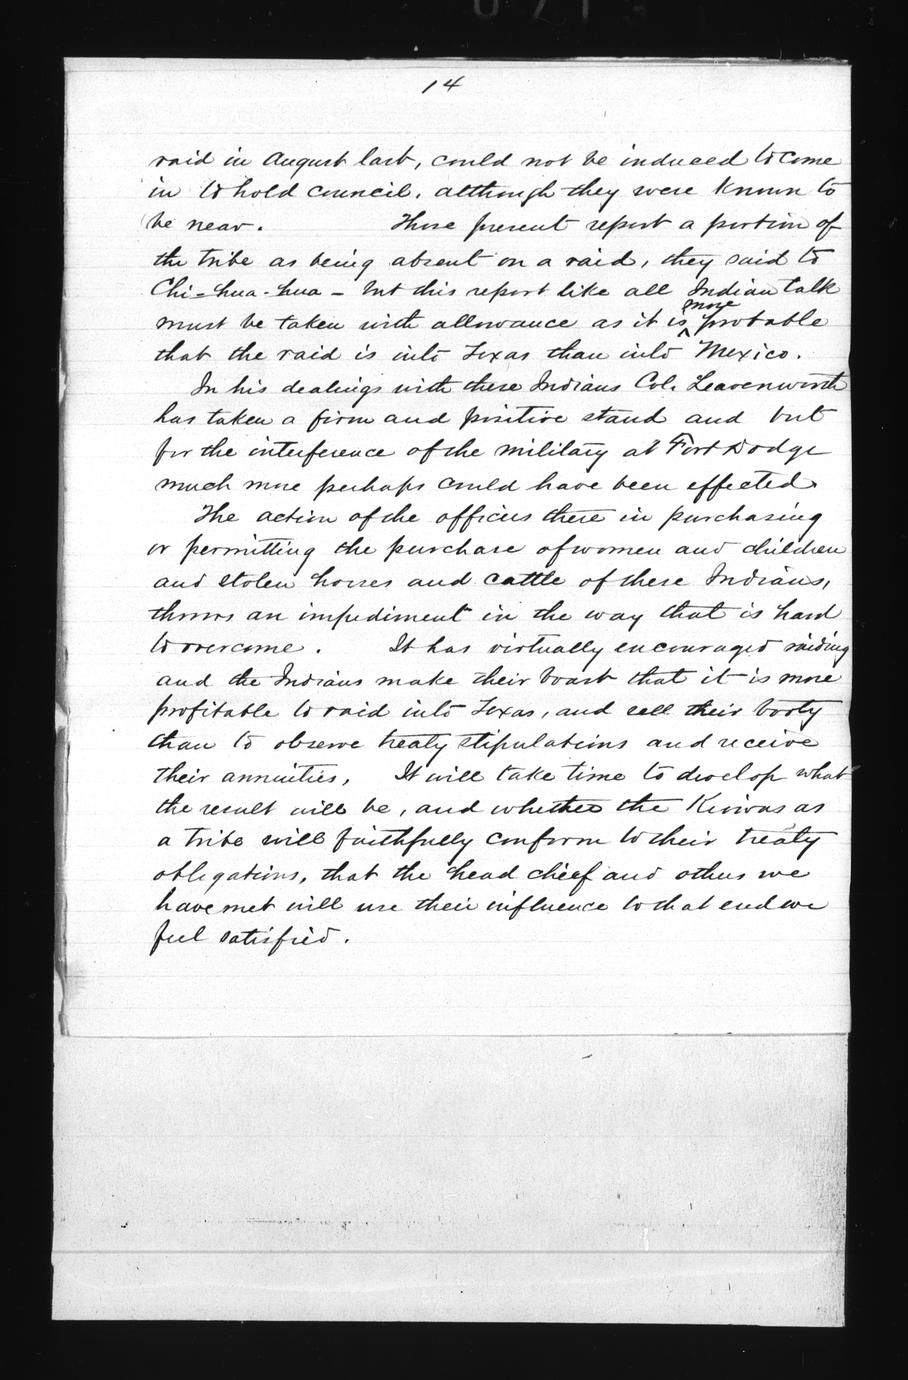 14
raid in August last, could not be induced to come
in to hold council, although they were known to
be near. Those present report a portion of
the tribe as being absent on a raid, they said to
Chi-hua-hua - but this report like all Indian talk
must be taken with allowance as it is more probable
that the raid is into Texas than into Mexico.
In his dealings with these Indians Col. Leavenworth
has taken a firm and positive stand and but
for the interference of the military at Fort Dodge
much more perhaps could have been effected.
The action of the officers there in purchasing
or permitting the purchase of women and children
and stolen horses and cattle of these Indians,
throws an impediment in the way that is hard
to overcome. It has virtually encouraged raiding
and the Indians make their boast that it is more
profitable to raid into Texas, and sell their booty
than to observe treaty stipulations and receive
their annuities, It will take time to develop what
the result will be, and whether the Kiowas as
a tribe will faithfully conform to their treaty
obligations, that the head chief and others we
have met will use their influence to that end we
feel satisfied.